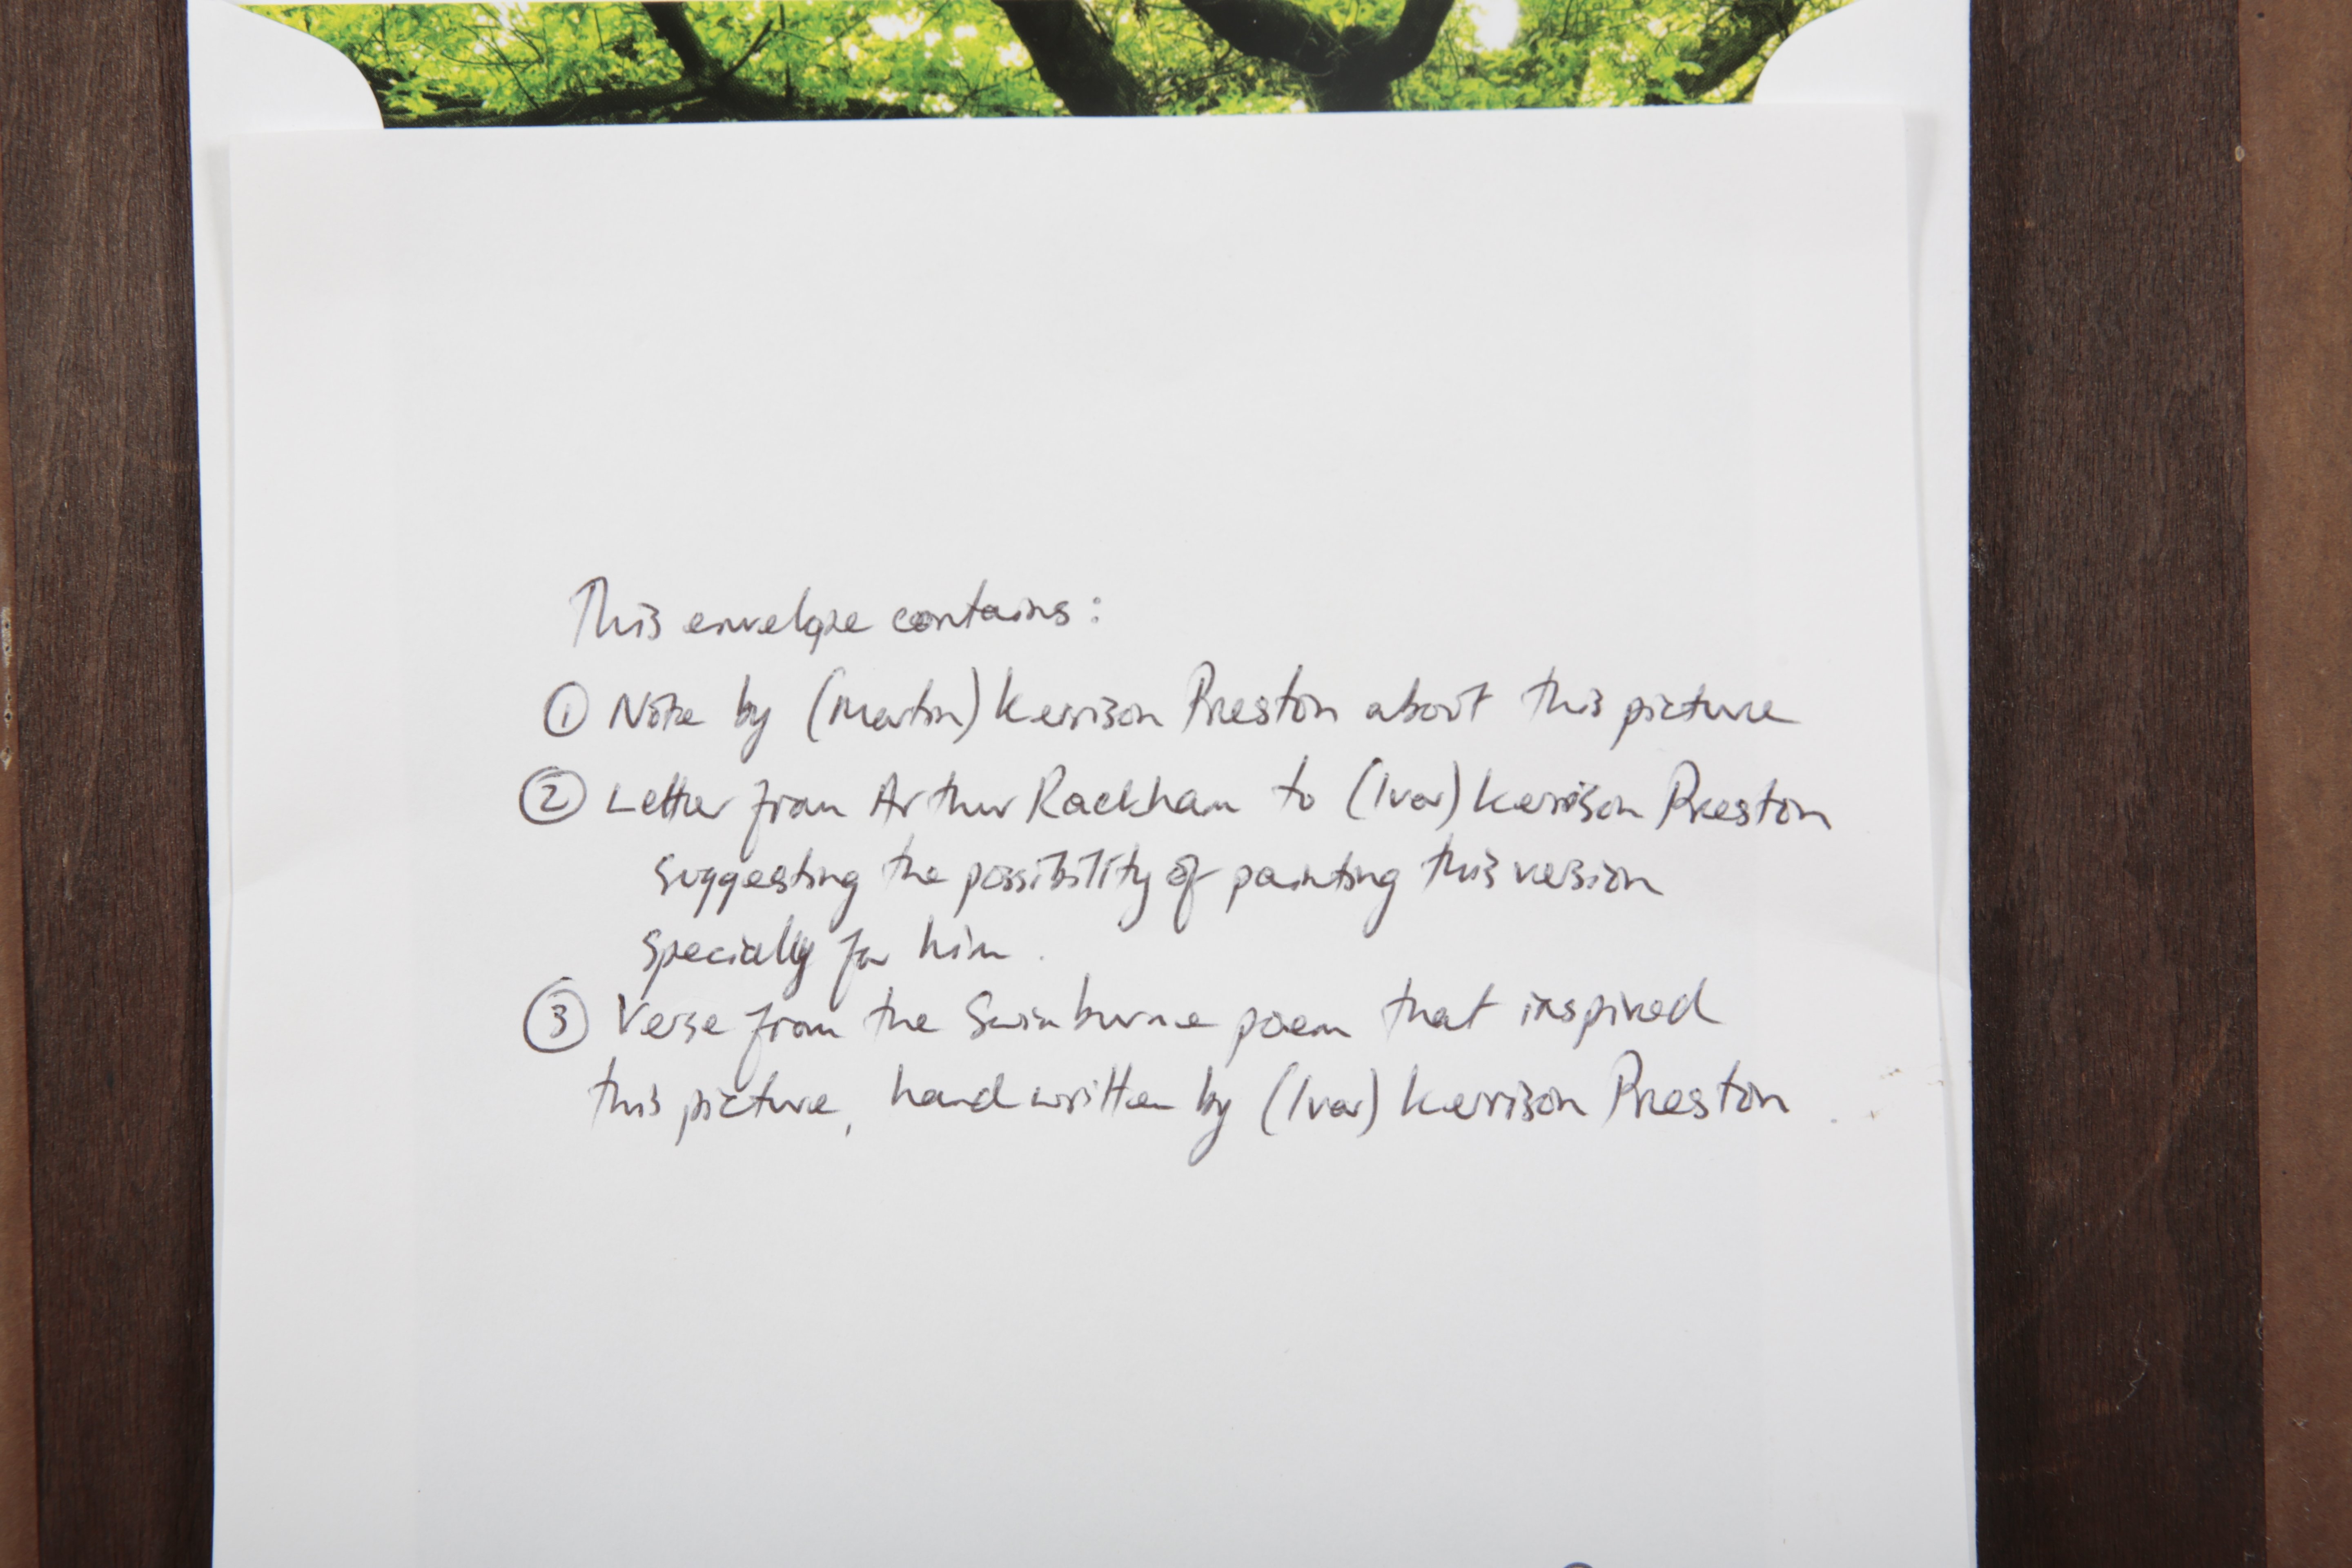 This envelope contains:
① Note by (Martin) Kerrison Preston about this picture
② Letter from Arthur Rackham to (Ivor) Kerrison Preston
suggesting the possibility of painting this version
specially for him.
③ Verse from the Swinburne poem that inspired
this picture, handwritten by (Ivor) Kerrison Preston.